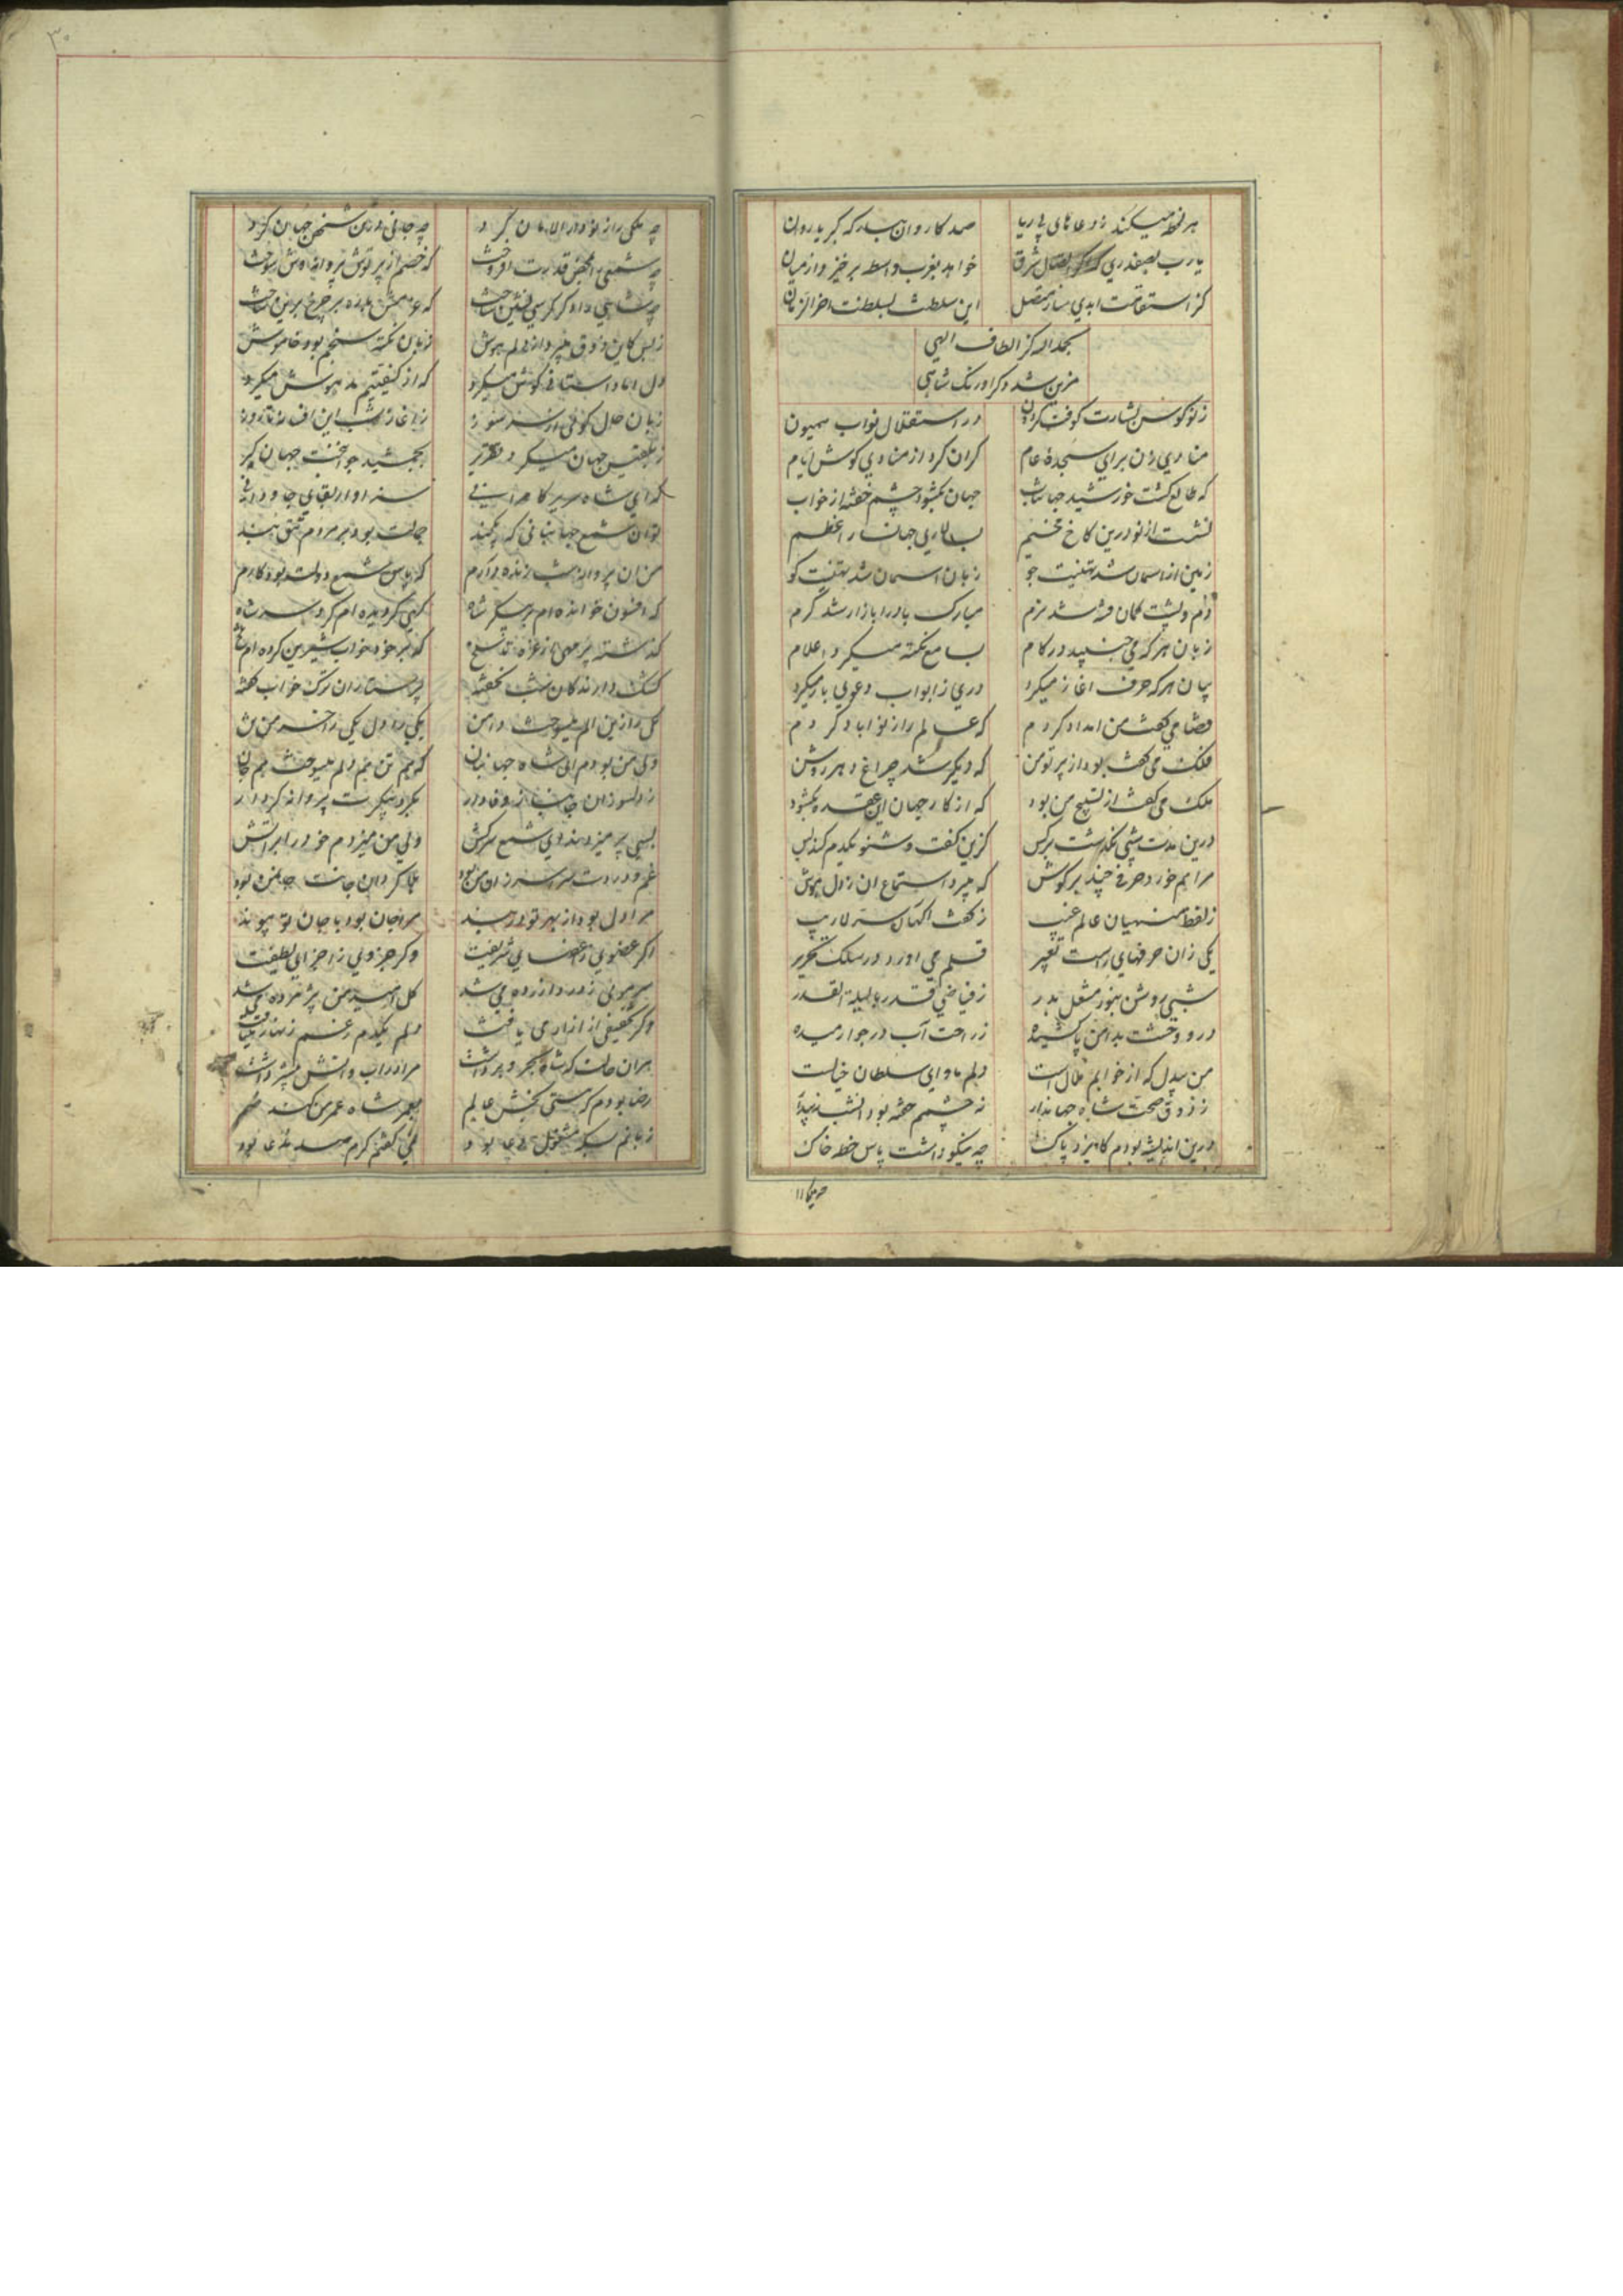 هر لحظه میکند ز دعاهای بی ریا
صد کاروان بدرکه کبریا روان
یارب بصفدری که اکر اتصال شرق
خواهد بغرب واسطه برخیزد از میان
کز استقامت ابدی ساز متصل
این سلطنت بسلطنت آخر الزمان
بحمدالله کز الطاف الهی
مزین شد دکر اورنک شاهی
ز نو کوس بشارت کوفت کردون
در استقلال نواب همیون
منادی زن برای سجدهٔ عام
کران کرد از منادی کوش ایام
که طالع کشت خورشید جهانتاب
جهان بکشود چشم خفته از خواب
نشست از نو درین کاخ مخیم
بسالاری جهانسالار اعظم
زمین از آسمان شد تهنیت جو
زبان آسمان شد تهنیت کو
مبارک باد را بازار شد کرم
زبان هر که می جنبید در کام
بسامع نکته میکرد اعلام
بیان هر که حرف آغاز میکرد
دری ز ابواب دعوی باز میکرد
قضا می کفت من امداد کردم
که عالم را ز نو آباد کردم
فلک می کفت بود از پرتو من
که دیکر شد چراغ دهر روشن
ملک می کفت از تسبیح من بود
که از کار جهان این عقده بکشود
درین مدت شبی نکذشت بر کس
کزین کفت و شنو یکدم کند بس
مرا هم خورد حرفی چند بر کوش
که میبرد استماع آن ز دل هوش
ز لفظ منهیان عالم غیب
ز کفت آکهان سر لاریب
یکی زان حرفهای راست تعبیر
قلم می آورد در سلک تحریر
شبی روشن بنور مشعل بدر
ز فیاضی قدر با لیلة القدر
در و وحشت بدامن پا کشیده
ز راحت آب در جو آرمیده
من بیدل که از خوابم ملال است
دلم ماوای سلطان خیالست
ز ذوق صحت شاه جهاندار
نه چشمم خفته بود آنشب نه بیدار
درین اندیشه بودم کایزد پاک
چه نیکو داشت پاس خطه خاک
چه ملکی را ز نو دار الامان کرد
چه جانی در تن شخص جهان کرد
چه شمعی را بمحض قدرت افروخت
که خصم از پرتوش پروانه وش سوخت
چه شاهی داد کر کرسی نشین ساخت
ز بس کاین ذوق میبرد از دلم هوش
زبان نکته سنجم بود خاموش
دل اما داستانی کوش میکرد
که از کیفیتم مدهوش میکرد
زبان حال کوئی
ز آغاز شب این افسانه تا روز
ز تلقین جهان میکرد تقریر
بجمشید جوانبخت جهانکیر
که ای شاه سریر کامرانی
سزاوار بقای جاودانی
توآن شمع جهانبانی که یکچند
جمالت بود بر مردم تتق بند
من آن پروانه شب زنده دارم
که پاس شمع دولت بود کارم
که افسون خوانده ام بر پیکر شاه
کهی کردیده ام کرد سر شاه
کذشته بر من از غره تا سلخ
که بر خود خواب شیرین کرده ام تلخ
کشک دارندکان شب نخفته
پرستاران ترک خواب کفته
کل راز این الم میسوخت دامن
یکی را دل یکی را خرمن تن
ولی من بودم ای شاه جهانبان
که هم تن هم دلم میسوخت هم جان
ز دلسوزان جانباز وفادار
بکرد پیکرت پروانه کردار
بسی پر میزدند ای شمع سرکش
ولی من میزدم خود را بر آتش
غم و دردت سراسر زان من بود
بلاکردان جانت جان من بود
مرا دل بود از بهر تو در بند
مرا جان بود با جان تو پیوند
اکر عضوی ز اعضای شریفت
وکر جزوی ز اجزای لطیفت
سر موئی ز درد آزرده می شد
کل امید من پژمرده می شد
وکر تخفیفی از آزار می یافت
دلم یکدم ز غم زنهار می یافت
مرا در آب و آتش بیشتر داشت
رضا بودم که هستی بخش عالم
بعمر شاه عمر من کند ضم
زبانم بسکه مشغول دعی بود
نمی کفتم کرم صد مدعی بود